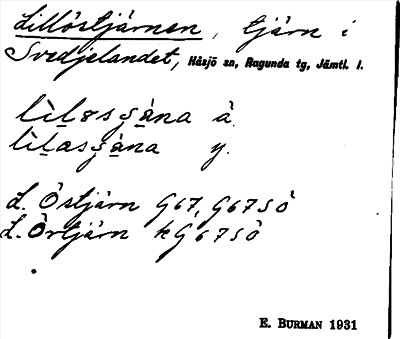 Lillöstjärnen, tjärn i
Svedjelandet, Håsjö sn, Ragunda tg, Jämtl. l.
lìḷøsʒá̱na å.
lìḷasʒá̱na y.
L. Östjärn G67, G67SÖ
L. Örtjärn kG67SÖ
E. BURMAN 1931